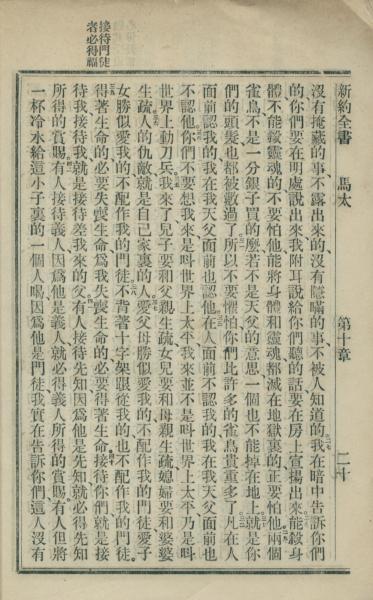 接待門徒
者必得福
新約全書 馬太 第十章 二十
沒有掩藏的事不露出來的沒有隱瞞的事不被人知道的我在暗中告訴你們
的你們要在明處說出來我附耳說給你們聽的話要在房上宣揚出來能殺身
體不能殺靈魂的不要怕他能將身體和靈魂都滅在地獄裏的正要怕他兩個
雀鳥不是一分銀子買的麼若不是天父的意思一個也不能掉在地上就是你
們的頭髮也都被數過了所以不要懼怕你們比許多的雀鳥貴重多了凡在人
面前認我的我在我天父面前也認他在人面前不認我的我在我天父面前也
不認他你們不要想我來是叫世界上太平我來並不是叫世界上太平乃是叫
世界上動刀兵我來了兒子要和父親生疏女兒要和母親生疏媳婦要和婆婆
生疏人的仇敵就是自己家裏的人愛父母勝似愛我的不配作我的門徒愛子
女勝似愛我的不配作我的門徒不背著十字架跟從我的也不配作我的門徒
得著生命的必要失喪生命爲我失喪生命的必要得著生命接待你們就是接
待我接待我就是接待差我來的父有人接待先知因爲他是先知就必得先知
所得的賞賜有人接待義人因爲他是義人就必得義人所得的賞賜有人但將
一杯冷水給這小子裏的一個人喝因爲他是門徒我實在告訴你們這人沒有